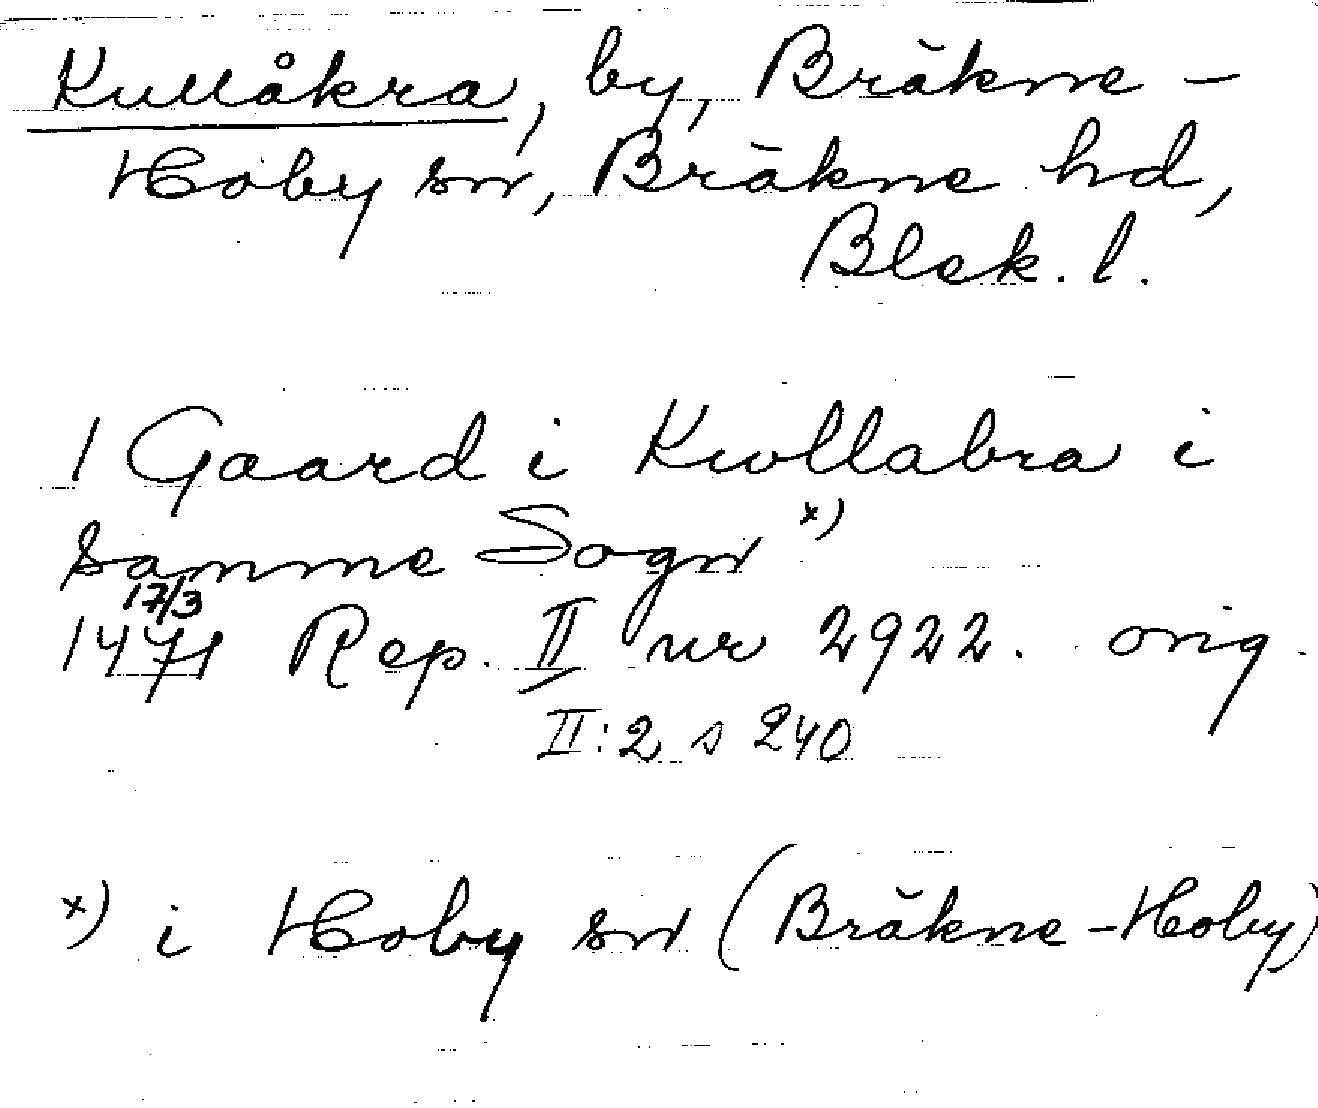 Kullåkra, by, Bräkne-
Hoby sn, Bräkne hd,
Blek. l.
1 Gaard i Kwllabra i
samme Sogn x)
17/3
1471 Rep. II nr 2922. orig.
II:2 s 240
x) i Hoby sn (Bräkne-Hoby)